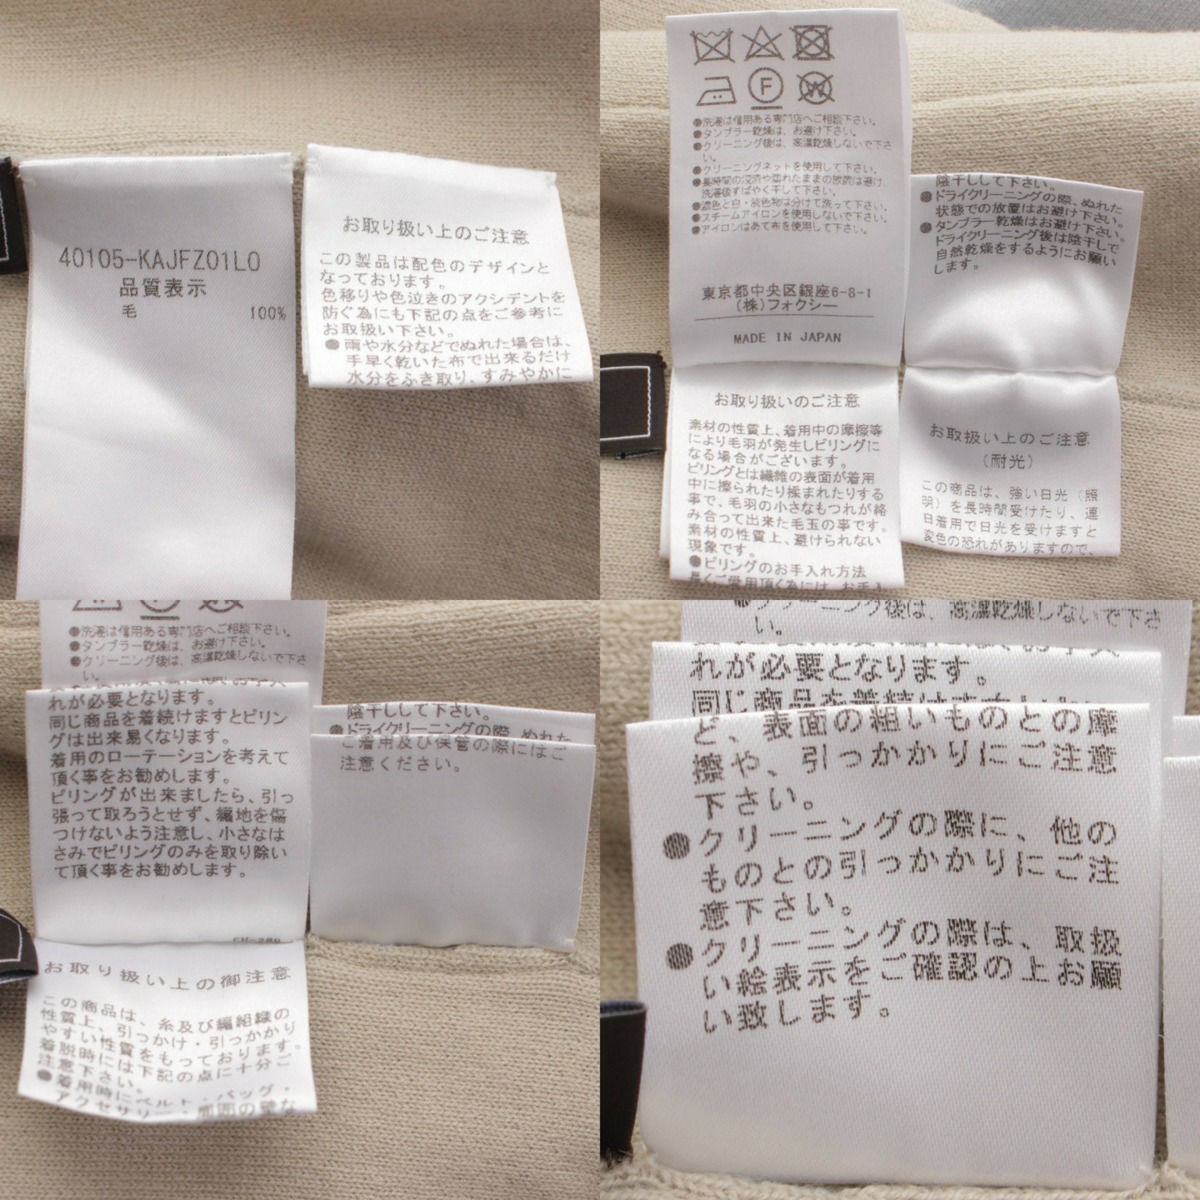 40105-KAJFZ01L0
品質表示
毛 100%
お取り扱い上のご注意
この製品は配色のデザインと
なっております。
色移りや色泣きのアクシデントを
防ぐ為にも下記の点をご参考に
お取扱い下さい。
●雨や水分などでぬれた場合は、
手早く乾いた布で出来るだけ
水分をふき取り、すみやかに
F
W
●洗濯は信用ある専門店へご相談下さい。
●タンブラー乾燥は、お避け下さい。
●クリーニング後は、高温乾燥しないで下さ
い。
●クリーニングネットを使用して下さい。
●長時間の浸漬や濡れたままの放置は避け、
洗濯後すばやく干して下さい。
●濃色と白・淡色物は分けて洗って下さい。
●スチームアイロンを使用しないで下さい。
●アイロンはあて布を使用して下さい。
東京都中央区銀座6-8-1
(株)フォクシー
MADE IN JAPAN
お取り扱いのご注意
素材の性質上、着用中の摩擦等
により毛羽が発生しピリングに
なる場合がございます。
ピリングとは繊維の表面が着用
中に擦られたり揉まれたりする
事で、毛羽の小さなもつれが絡
み合って出来た毛玉の事です。
素材の性質上、避けられない
現象です。
●ピリングのお手入れ方法
長くご愛用頂く為には、お手入
陰干しして下さい。
●ドライクリーニングの際、ぬれた
状態での放置はお避け下さい。
●タンブラー乾燥はお避け下さい。
ドライクリーニング後は陰干しで
自然乾燥をするようにお願い
します。
お取扱い上のご注意
(耐光)
この商品は、強い日光(照
明)を長時間受けたり、連
日着用で日光を受けますと
変色の恐れがありますので、
●洗濯は信用ある専門店へご相談下さい。
●タンブラー乾燥は、お避け下さい。
●クリーニング後は、高温乾燥しないで下さ
い。
れが必要となります。
同じ商品を着続けますとピリン
グは出来易くなります。
着用のローテーションを考えて
頂く事をお勧めします。
ピリングが出来ましたら、引っ
張って取ろうとせず、編地を傷
つけないよう注意し、小さなは
さみでピリングのみを取り除い
て頂く事をお勧めします。
お取り扱い上の御注意
この商品は、糸及び編組織の
性質上、引っかけ・引っかかり
やすい性質をもっております。
着脱時には下記の点に十分ご
注意下さい。
●着用時にベルト・バッグ・
アクセサリー・壁面の壁な
陰干しして下さい。
●ドライクリーニングの際、ぬれた
ご着用及び保管の際にはご
注意ください。
クリーニング後は、高温乾燥しないで下さ
い。
れが必要となります。
同じ商品を着続けますと
ど、表面の粗いものとの摩
擦や、引っかかりにご注意
下さい。
●クリーニングの際に、他の
ものとの引っかかりにご注
意下さい。
●クリーニングの際は、取扱
い絵表示をご確認の上お願
い致します。